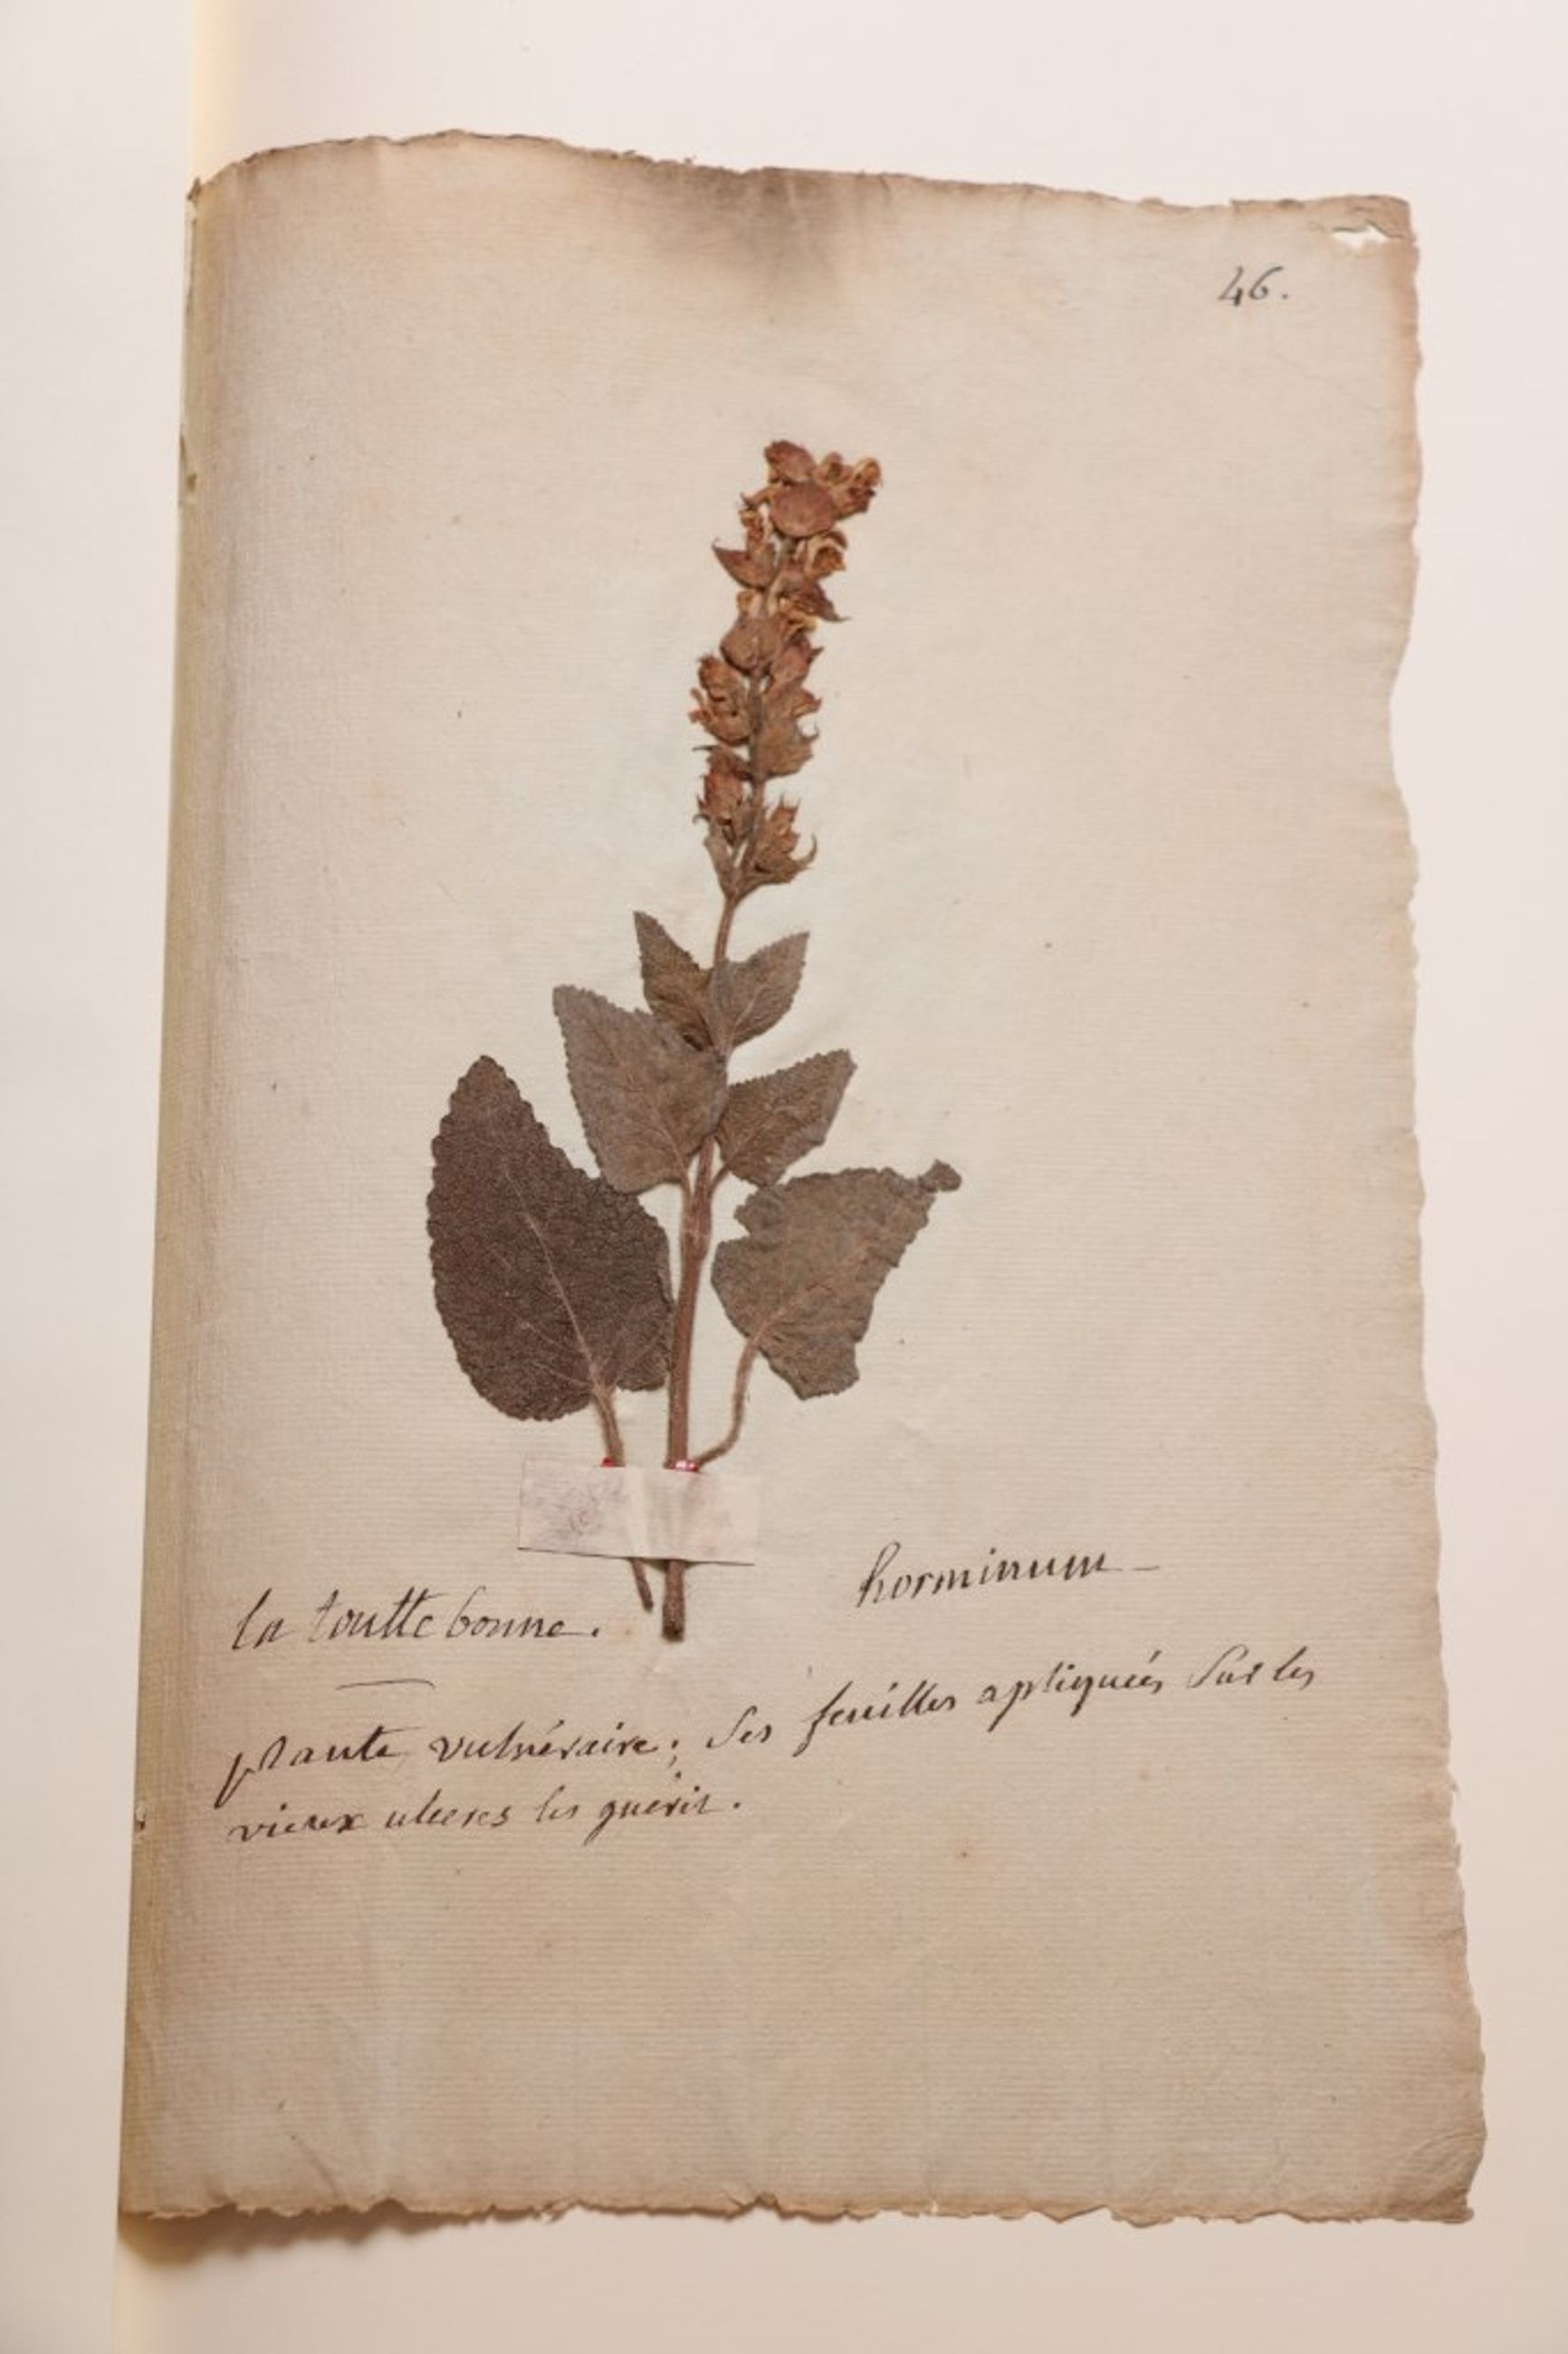 46.
la toutte bonne.
horminum
plante vulnéraire; Ses feuilles apliquées Sur les
vieux ulceres les guérit.